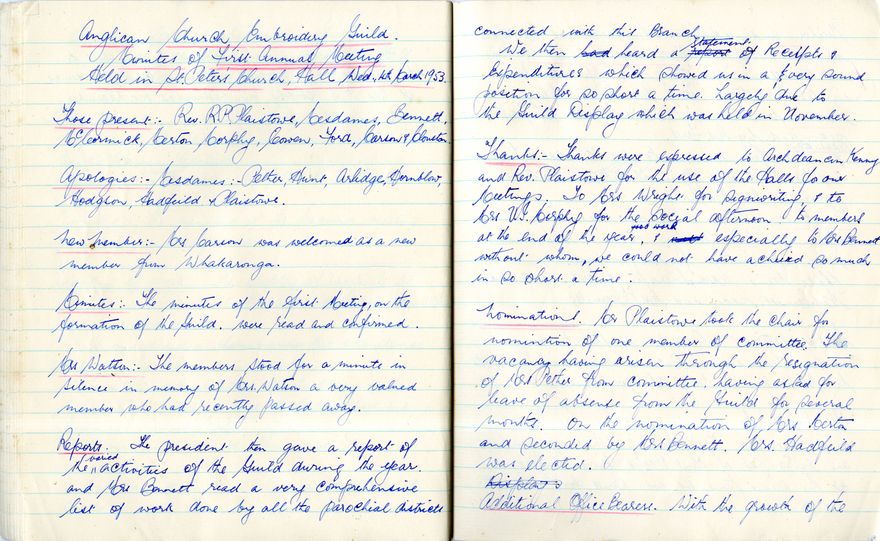 Anglican Church Embroidery Guild.
Minutes of First Annual Meeting
Held in St. Peters Church Hall Wed. 4th March 1953.
Those present:- Rev. R.P. Plaistowe, Mesdames, Bennett,
McCormick, Merton Morphy, Cowen, Ford, Carson & Clouston.
Apologies:- Mesdames:- Pether, Hunt, Arlidge, Hornblow,
Hodgson, Hadfeild & Plaistowe.
New member:- Mrs Carson was welcomed as a new
member from Whakaronga.
Minutes:- The minutes of the first Meeting, on the
formation of the Guild. were read and confirmed.
Mrs Watson:- The members stood for a minute in
silence in memory of Mrs. Watson a very valued
member who had recently passed away.
Reports. The president then gave a report of
the varied activities of the Guild during the year.
and Mrs Bennett read a very comprehensive
list of work done by all the parochial districts
connected with this Branch
We then had heard a report statement of Receipts &
Expenditures which showed us in a very sound
position for so short a time. Largely due to
the Guild Display which was held in November.
Thanks:- Thanks were expressed to Archdeacon Kenny
and Rev. Plaistowe for the use of the Halls for our
Meetings. To Mrs Wright for signwriting, & to
Mrs V. Morphy for the social afternoon to members
at the end of the year, & especially to Mrs Bennett
without whom, we could not have achieved so much
in so short a time.
Nominations. Mr Plaistowe took the chair for
nomintion of one member of committee. The
vacancy having arisen through the resignation
of Mrs Pether from committee. having asked for
leave of absense from the Guild for several
months. On the nomination of Mrs Merton
and seconded by Mrs Bennett. Mrs. Hadfeild
was elected.
Display:
Additional Office Bearers. With the growth of the